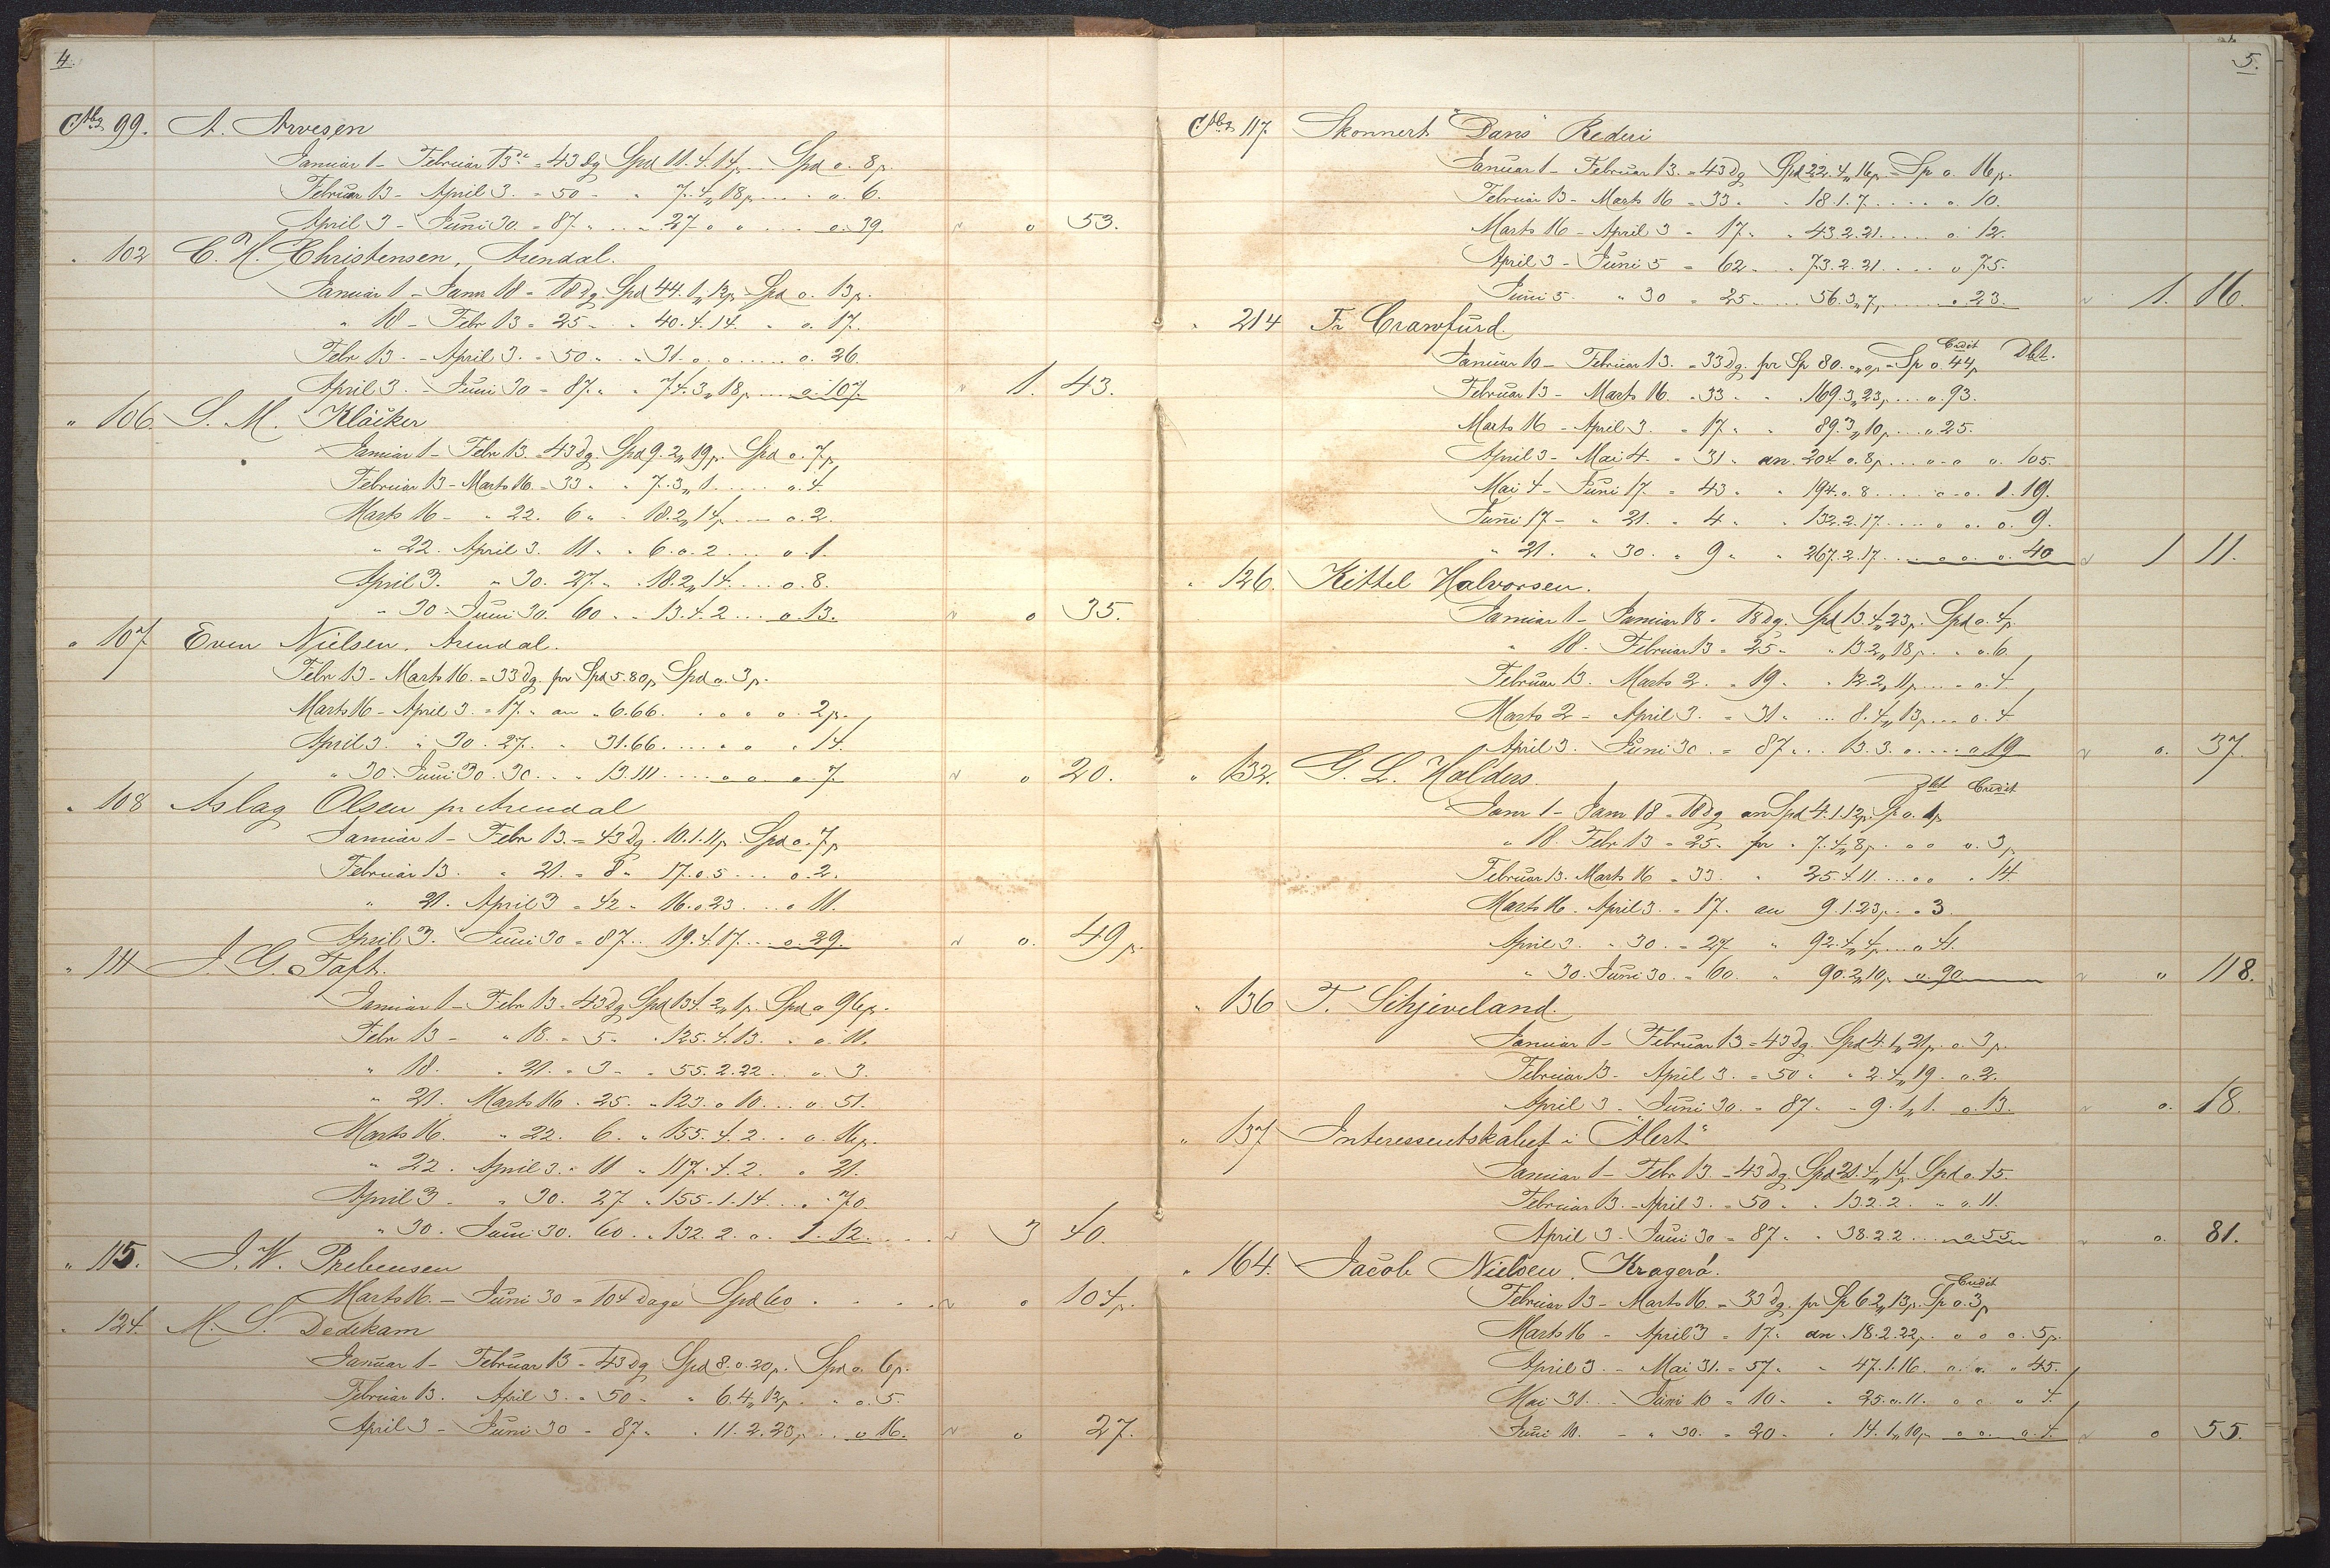 4.
99. A. Arvesen
Januar 1 - Februar 13de = 43 dg Spd 11.4.14p. Spd o. 8p.
Februar 13 - April 3. = 50 - " 7.4„18p. ... o. 6.
April 3 - Juni 30. = 87. " .. 27 o o ... o. 39. o 53.
" 102 C. H. Christensen, Arendal.
Januar 1 - Janr 18 = 18 dg. Spd 44.1„12p. Spd o. 13p.
" 18 - Febr 13 = 25 - " 40.4.14. " o. 17.
Febr 13. - April 3. = 50 " " 31. o. o ... o. 26.
April 3. - Juni 30 = 87. " " 74.3„18p. ... o. 107. 1. 43.
" 106. S. M. Kløcker
Januar 1 - Febr 13. = 43 dg. Spd 9.2„19p. Spd o. 7p.
Februar 13 - Marts 16. = 33 " " 7.3„1. ... o. 4.
Marts 16 - " 22. 6 " " 18.2„14p. ... o. 2.
" 22. April 3. 11 " " 6.o.2 ... o. 1.
April 3. " 30. 27. " " 18.2„14. ... o. 8.
" 30 - Juni 30. 60 " " 13.4.2 ... o. 13. o 35.
" 107 Even Nielsen, Arendal.
Febr 13 - Marts 16. = 33 dg. pr Spd 5.80p, Spd o. 3p.
Marts 16 - April 3. = 17. " an " 6.66. . o o o. 2p.
April 3. " 30. 27. " 31.66. .... " o " 14.
" 30. Juni 30. 30. " " 13.111. ... o o o. 7. o 20.
" 108 Aslag Olsen pr Arendal
Januar 1 - Febr 13. = 43 dg. 10.1.11p. Spd o. 7p
Februar 13. " 21. = 8 " 17.o.5 ... o. 2.
" 21. April 3 = 42 " 16.o.23 ... o 11.
April 3. Juni 30 = 87. .. 19.4.17. ... o. 29. o. 49p.
" 111 J. G. Taft.
Januar 1 - Febr 13 = 43 dg Spd 134.2„1p. Spd o 96p.
Febr 13 - " 18. = 5 " " 125.4.13. " o. 11.
" 18. " 21. = 3 - " 55.2.22 .. o. 3.
" 21. Marts 16. 25. " 123.o 10 ... o. 51.
Marts 16. " 22. 6. " 155.4.2 .. o. 16p.
" 22. April 3. " 11 " 117.4.2. " 21.
April 3 - " 30. 27 " 155.1.14 ... " 70.
" 30. Juni 30. 60. " 132.2.o. 1.12. ... 3 40.
" 115. J. W. Prebensen
Marts 16. - Juni 30 = 104 dage Spd 60 . . . . o 104p.
" 124. M. S. Dedekam
Januar 1 - Februar 13 = 43 dg Spd 8.o.20p. Spd o. 6p.
Februar 13. April 3. = 50 - " 6.4„12p. " o. 5.
April 3 - Juni 30 - 87 " " 11.2.23p. .. o 16. o 27.
5.
117. Skonnert "Dans" Rederi
Januar 1 - Februar 13. = 43 dg Spd 22.4„16p. = Sp o. 16p.
Februar 13 - Marts 16 = 33 " " 18.1.7. ... o. 10.
Marts 16 - April 3 - 17 " " 43.2.21. ... o. 12.
April 3 - Juni 5 = 62 " " 73.2.21. ... o 75.
Juni 5. " 30 = 25 ... 56.3„7p. ... o 23. 1. 16.
" 214 Fr Crawfurd.
Credit Dbt.
Januar 10 - Februar 13. = 33 dg. pr Sp 80. o„op = Sp o. 44p
Februar 13 - Marts 16. = 33 " " 169.3„23p. ... o. 93.
Marts 16 - April 3. = 17 " " 89.3„10p. ... " 25.
April 3 - Mai 4. = 31 " an. 204 o. 8p. ... o o o. 105.
Mai 4 - Juni 17. = 43 " " 194.o.8. ... o o. 1.19.
Juni 17 - " 21. " 4 " " 132.2.17. ... o o. o. 9.
" 21. " 30. " 9 " " 267.2.17. ... o o. o. 40 1 11.
" 126. Kittel Halvorsen.
Januar 1 - Januar 18 = 18 dg. Spd 13.4„23p. Spd o. 4p.
" 18. Februar 13 = 25 " " 13.2„18p. " o. 6.
Februar 13. Marts 2. = 19 " " 12.2„11p. ... o. 4.
Marts 2 - April 3. = 31 " ... 8.4„13p. ... o. 4.
April 3. Juni 30. = 87 ... 13.3.o. ... o 19 o. 37.
" 132. G. L. Halders.
Dbt Credit
Janr 1 - Janr 18 = 18 dg an Spd 4.1.12p. Sp o. 1p
" 18. Febr 13 = 25. pr " 7.4„8p. " o o. 3p
Februar 13. Marts 16 = 33. " 25.4.11. ... o " 14.
Marts 16. April 3. = 17. an 9.1.23p. " 3.
April 3. " 30. = 27 " 92.4„4p. ... o 41.
" 30. Juni 30. = 60. " 90.2„10p. o. 90. " 118.
" 136 T. Schjeveland.
Januar 1 - Februar 13 = 43 dg. Spd 4.1„21p. o. 3p.
Februar 13 - April 3. = 50 " " 2.4„19. o. 2.
April 3 - Juni 30. = 87 " - 9.1„1. o. 13. o. 18.
" 137 Interessentskabet i "Alert"
Januar 1 - Febr 13 = 43 dg. Spd 21.4„14p. Spd o. 15.
Februar 13. - April 3. = 50 " " 13.2.2. - o. 11.
April 3 - Juni 30 = 87 " " 38.2.2 ... o. 55 o. 81.
" 164. Jacob Nielsen, Kragerö.
Credit
Februar 13 - Marts 16. = 33 dg. pr Sp 6.2„13p. Sp o. 3p
Marts 16 - April 3 = 17. " an " 18.2.22p. o o o. 5p.
April 3 - Mai 31. = 57 " " 47.1.16. o. o. " 45.
Mai 31. - Juni 10 = 10 " " 25.o.11. o o " 4.
Juni 10. - " 30. = 20 - " 14.1„10p. o o. o. 4. o 55.